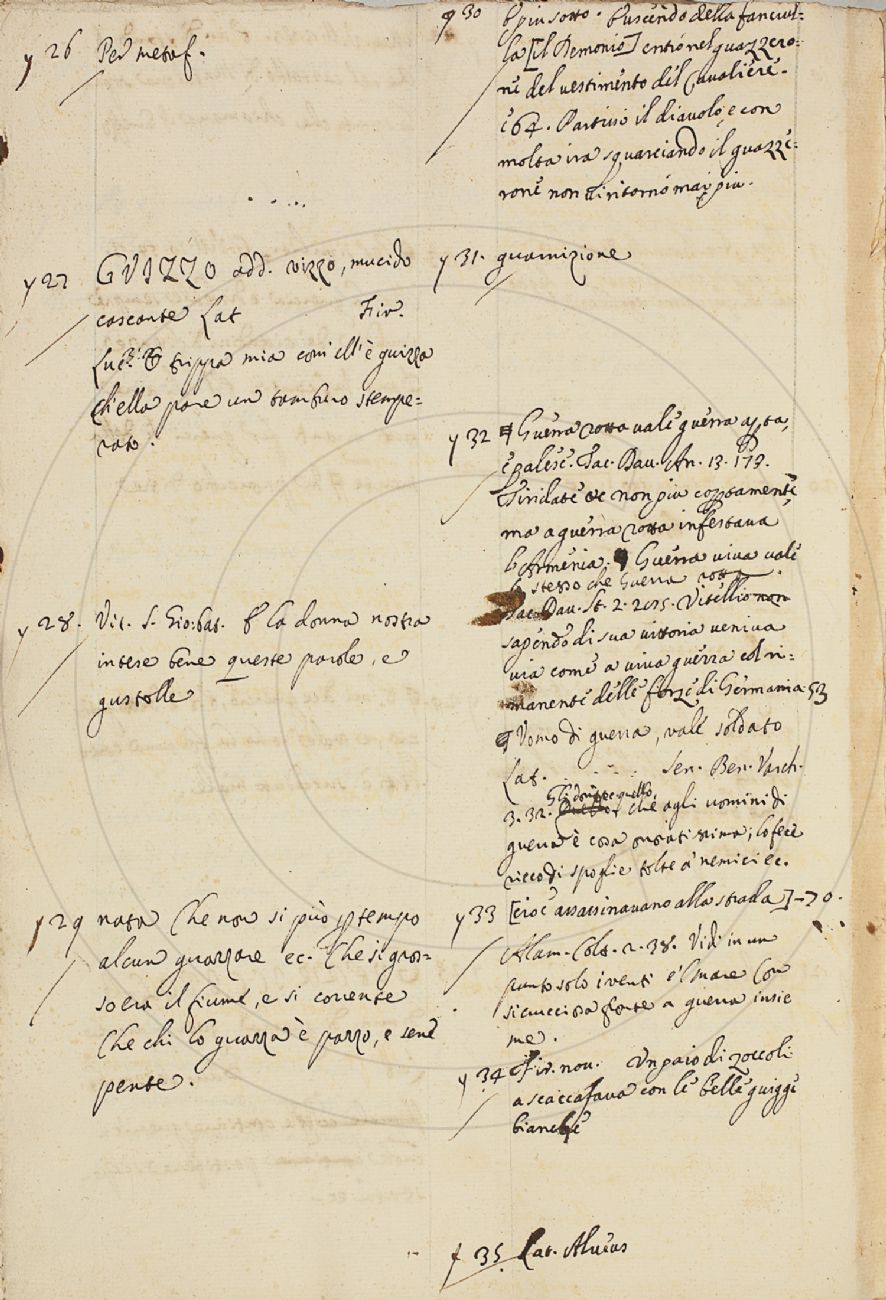 y 26 Per metaf.
y 27 GVIZZO add. vizzo, mucido
cascante Lat Fir.
Luc. trippa mia com'ell'è guizza
ch'ella pare un tamburo stempe=
rato.
y 28. Vit. S. Gio:bat. La donna nostra
intese bene queste parole, e
gustolle
y 29 nata Che non si può tempo
alcun guazzare ec. Che sì gros=
so era il fiume, e sì corrente
Che chi lo guazza è pazzo, e sene
pente.
y 30 E piu sotto. Uscendo della fanciul=
la [il Demonio] entrò nel guazzero=
ne del vestimento del Cavaliere.
E 64. Partissi il diavolo, e con
molta ira squarciando il guazze=
rone non vi ritornò mai piu.
y 31. guarnizione
y 32 Guerra rotta vale guerra apta,
e palese. Tac. Dav. An. 13. 179.
Tiridate non piu coptamente,
ma a guerra rotta infestava
l'Armenia. Guerra viva vale
lo stesso che Guerra rotta.
Tac. Dav. St. 2. Vitellio non
sapendo di sua vittoria veniva
via come a viva guerra col ri=
manente delle forze di Germania 53
Uomo di guerra, vale soldato
Lat. . . . . . Sen. Ben. Varch.
3. 32. Gli donò quello,
che agli uomini di
guerra è cosa onoratissima; lo fece
ricco di spoglie tolte a' nemici ec.
y 33 [cioè assassinavano alla strada] - 70.
Alam. Colt. 2. 38. Vidi in un
punto solo i venti e'l mare Con
sì cruccioso forte a guerra insie
me.
y 34 Fir. nov. Un paio di zoccoli
a scaccafava con le belle guigge
bianche
y 35 Lat. Alveus